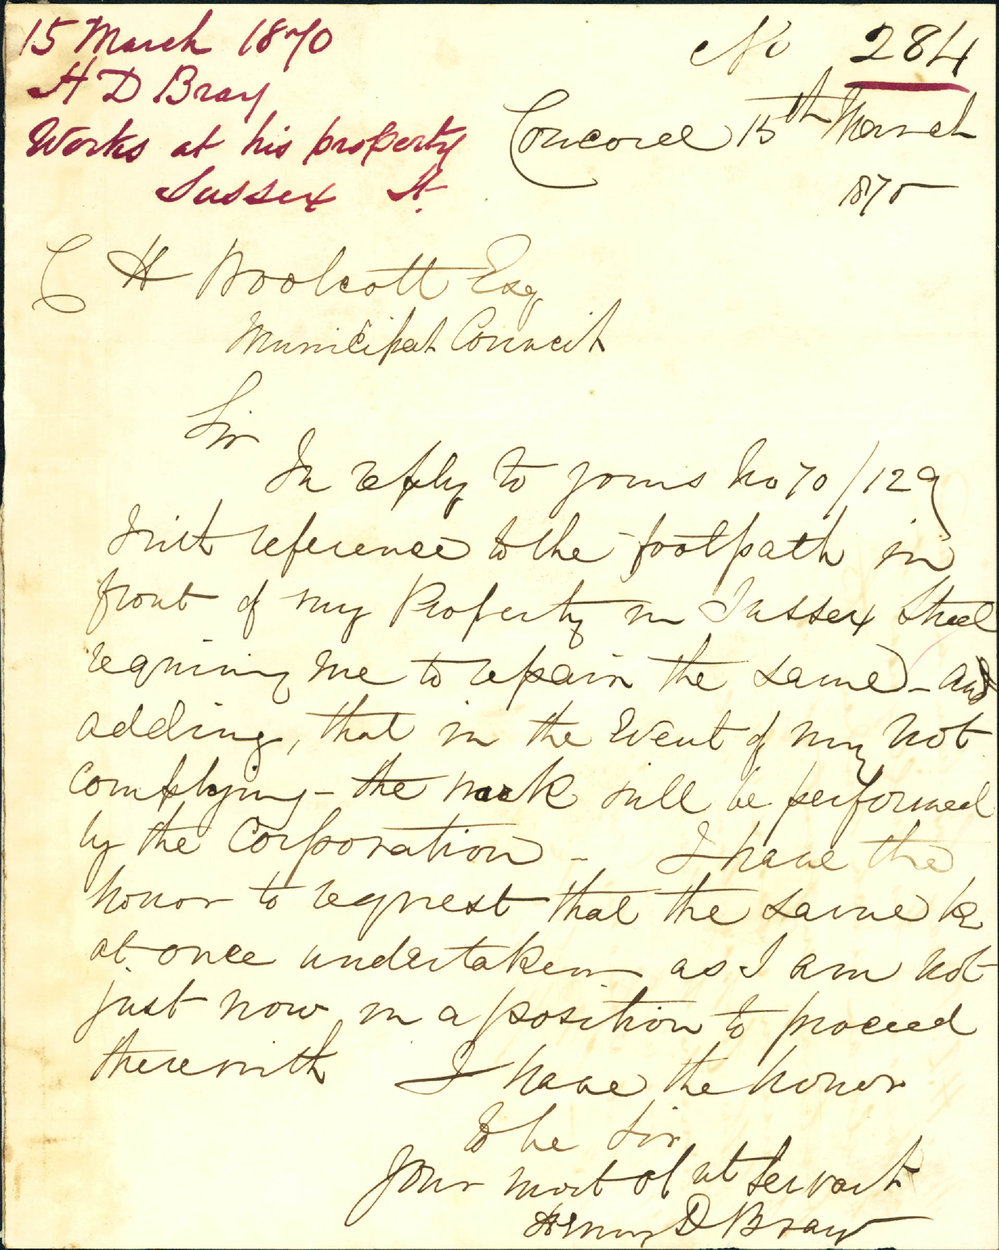 15 March 1870
H D Bray
Works at his property
Sussex St.
No 284
Concord 15th March
1870
C H Woolcott Esq
Municipal Council
Sir
In reply to yours No 70/129
with reference to the footpath in
front of my Property in Sussex Street
requiring me to repair the same - and
adding, that in the Event of my not
complying - the work will be performed
by the Corporation - I have the
honor to request that the same be
at once undertaken as I am not
just now in a position to proceed
therewith I have the honor
to be Sir
Your most obt Servant
Henry D Bray